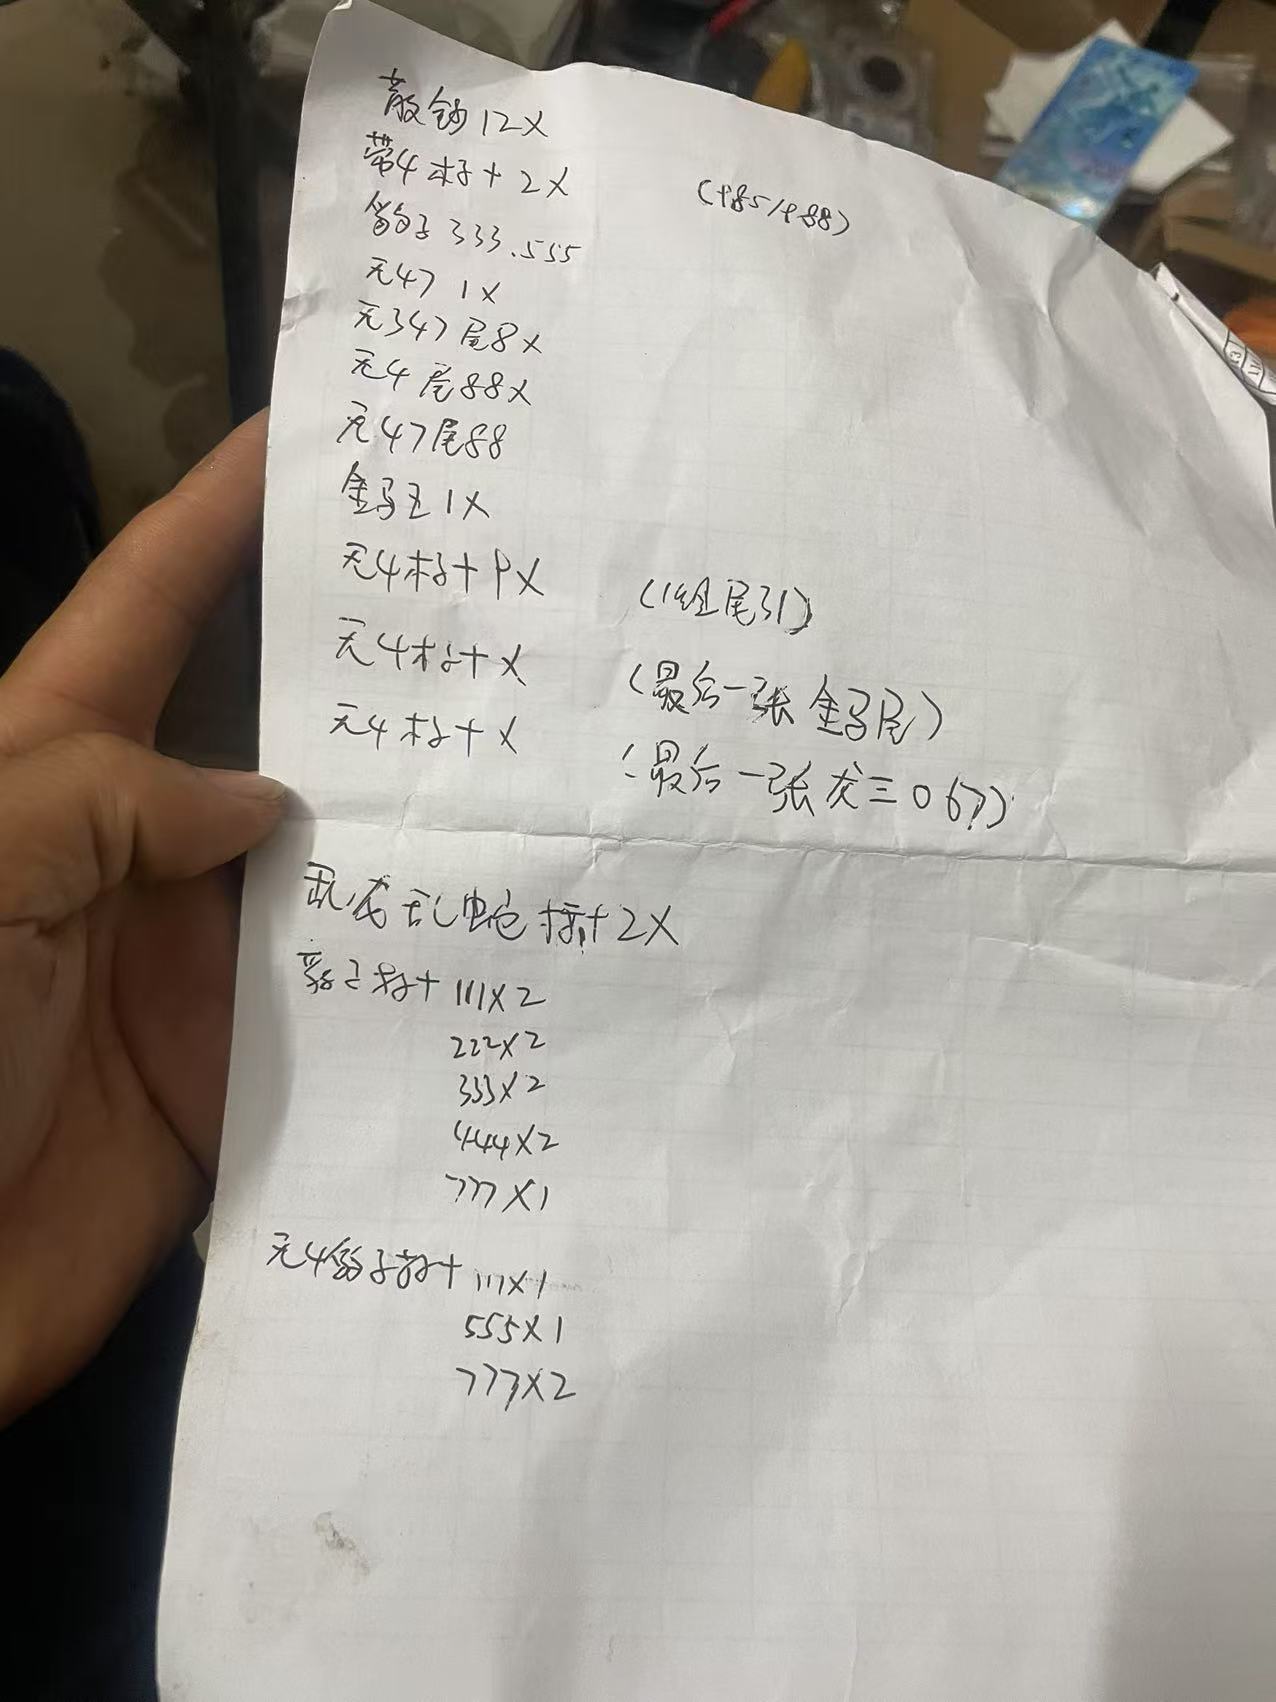 散钞12X
带4标十 2X (985/988)
豹子333.555
无47 1X
无347尾8X
无4尾88X
无47尾88
金马王1X
无4标十9X (1组尾31)
无4标十X (最后一张金马尾)
无4标十X (最后一张龙三067)
乱龙乱蛇标十2X
豹子标十 111X2
222X2
333X2
444X2
777X1
无4豹子标十 111X1
555X1
777X2